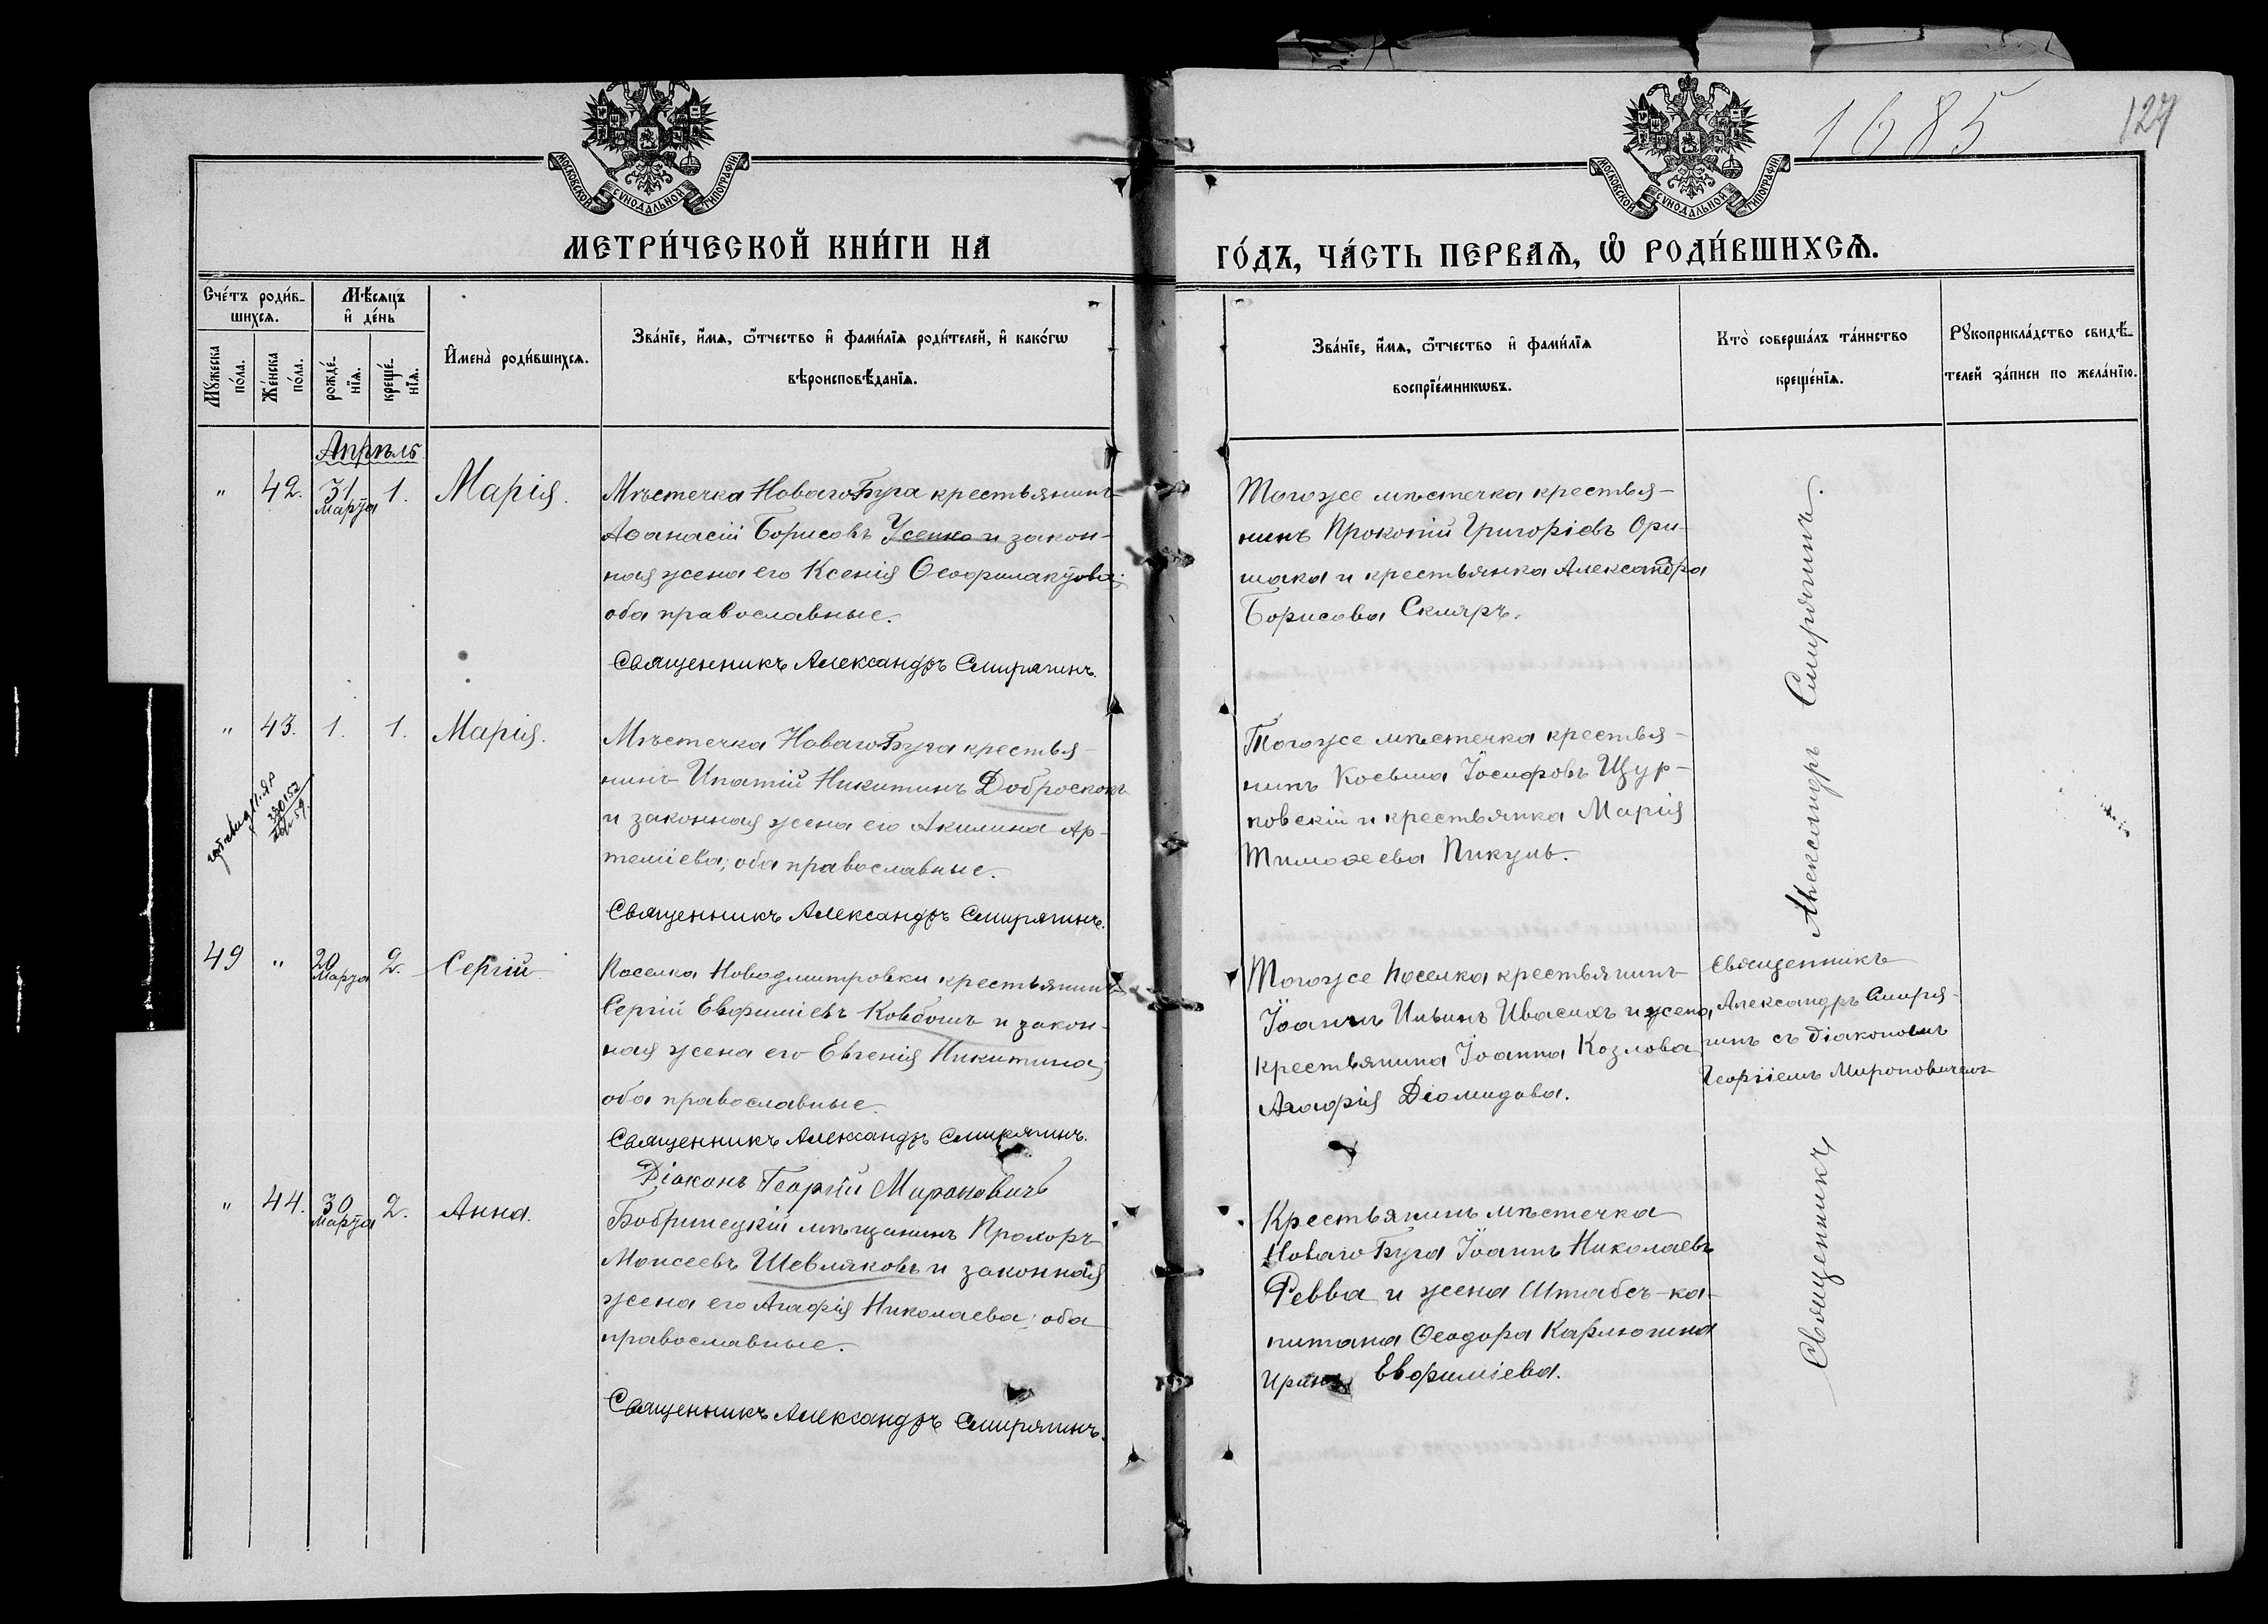 1685
127
МОСКОВСКОЙ СѴНОДАЛЬНОЙ ТИПОГРАФІИ
МОСКОВСКОЙ СѴНОДАЛЬНОЙ ТИПОГРАФІИ
МЕТРИ́ЧЕСКОЙ КНИ́ГИ НА
ГО́ДЪ, ЧА́СТЬ ПЕРВАѦ, Ѡ҆ РОДИ́ВШИХСѦ.
Сче́тъ роди́в-
шихсѧ.
Мѣ́сяцъ
и҆ де́нь
Мꙋ́жеска
по́ла.
Же́нска
по́ла.
рожде́-
нїѧ.
креще́-
нїѧ.
И҆мена̀ роди́вшихсѧ.
Зва́нїе, и҆́мѧ, ѻ҆́тчество и҆ фами́лїѧ роди́телей, и҆ како́гѡ
вѣроисповѣ́данїѧ.
Зва́нїе, и҆́мѧ, ѻ҆́тчество и҆ фами́лїѧ
воспрїе́мникѡвъ.
Кто̀ соверша́лъ та́инство
креще́нїѧ.
Рꙋкоприкла́дство свидѣ́-
телей за́писи по жела́нїю.
Апрѣль
" 42. 31 Марта 1. Марія.
Мѣстечка Новаго Буга крестьянинъ
Аѳанасій Борисовъ Усенко и закон-
ная жена его Ксенія Ѳеофилактова;
оба православные.
Священникъ Александръ Смирягинъ.
Тогоже мѣстечка крестья-
нинъ Прокопій Григоріевъ Ори-
шака и крестьянка Александра
Борисова Скляръ.
" 43. 1. 1. Марія.
Мѣстечка Новаго Буга крестья-
нинъ Ипатій Никитинъ Доброскокъ
и законная жена его Акилина Ар-
теміева; оба православные.
Священникъ Александръ Смирягинъ.
Тогоже мѣстечка крестья-
нинъ Косьма Іосифовъ Щур-
ковскій и крестьянка Марія
Тимоѳеева Пикуль.
49 " 20 Марта 2. Сергій
Поселка Новодмитровки крестьянинъ
Сергій Евфиміевъ Ковбашъ и закон-
ная жена его Евгенія Никитина;
оба православные.
Священникъ Александръ Смирягинъ.
Діаконъ Георгій Мироновичъ
Тогоже поселка крестьянинъ
Іоаннъ Ильинъ Ивасихъ и жена
крестьянина Іоанна Козлова
Агафія Діомидова.
Священникъ
Александръ Смиря-
гинъ съ діакономъ
Георгіемъ Мироновичемъ
" 44. 30 Марта 2. Анна.
Бобринецкій мѣщанинъ Прохоръ
Моисеевъ Шевляковъ и законная
жена его Агафія Николаева; оба
православные.
Священникъ Александръ Смирягинъ.
Крестьянинъ мѣстечка
Новаго Буга Іоаннъ Николаевъ
Ревва и жена Штабсъ-ка-
питана Ѳеодора Карлюгина
Ирина Евфиміева.
Священникъ Александръ Смирягинъ.